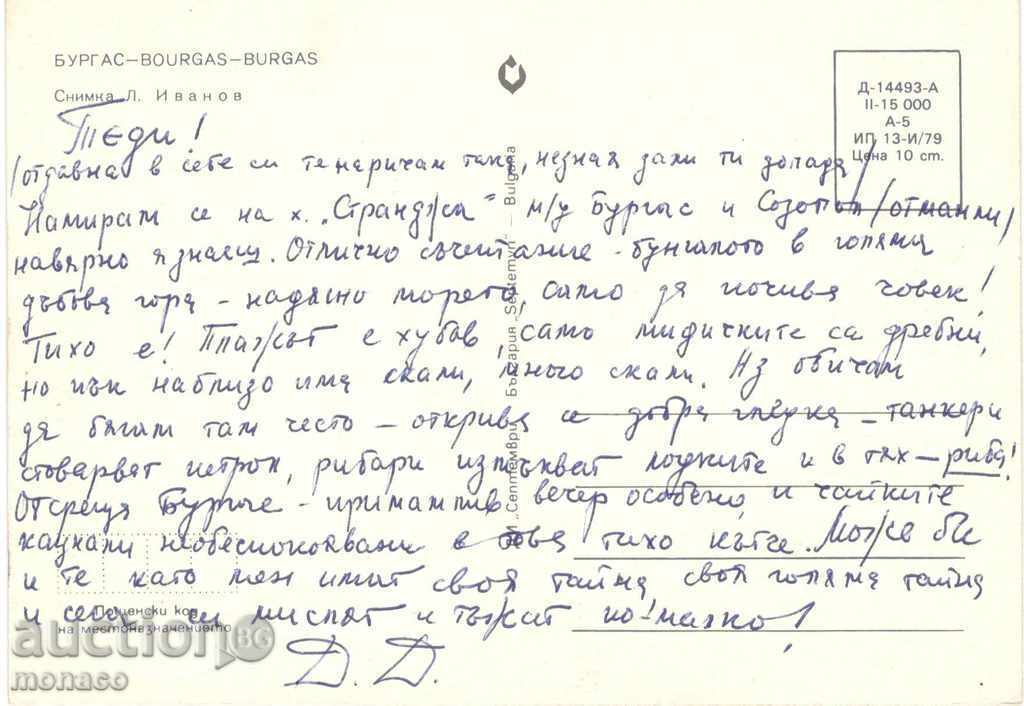 БУРГАС—BOURGAS—BURGAS
Снимка Л. Иванов
Д-14493-А
II-15 000
А-5
ИП 13-И/79
Цена 10 ст.
Теди!
/отдавна в себе си те наричам така, незная дали ти допада/
Намирам се на х. „Странджа" м/у Бургас и Созопол /отманли/
навярно я знаеш. Отлично съчетание - бунгалото в голяма
дъбова гора - надясно морето, само да почива човек!
Тихо е! Плажът е хубав, само мидичките са дребни,
но пък наблизо има скали, много скали. Аз обичам
да бягам там често - открива се добра гледка - танкери
стоварват петрол, рибари измъкват лодките и в тях - риба!
Отсреща Бургас - примамлив вечер особено, и чайките
кацнали необезпокоявани в това тихо кътче. Може би
и те като мен имат своя тайна, своя голяма тайна
и сега си мислят и тъжат по-малко!
Д. Д.
ДИ „Септември" България „Septemvri" — Bulgaria
Пощенски код
на местоназначението
aukcion.BG
monaco